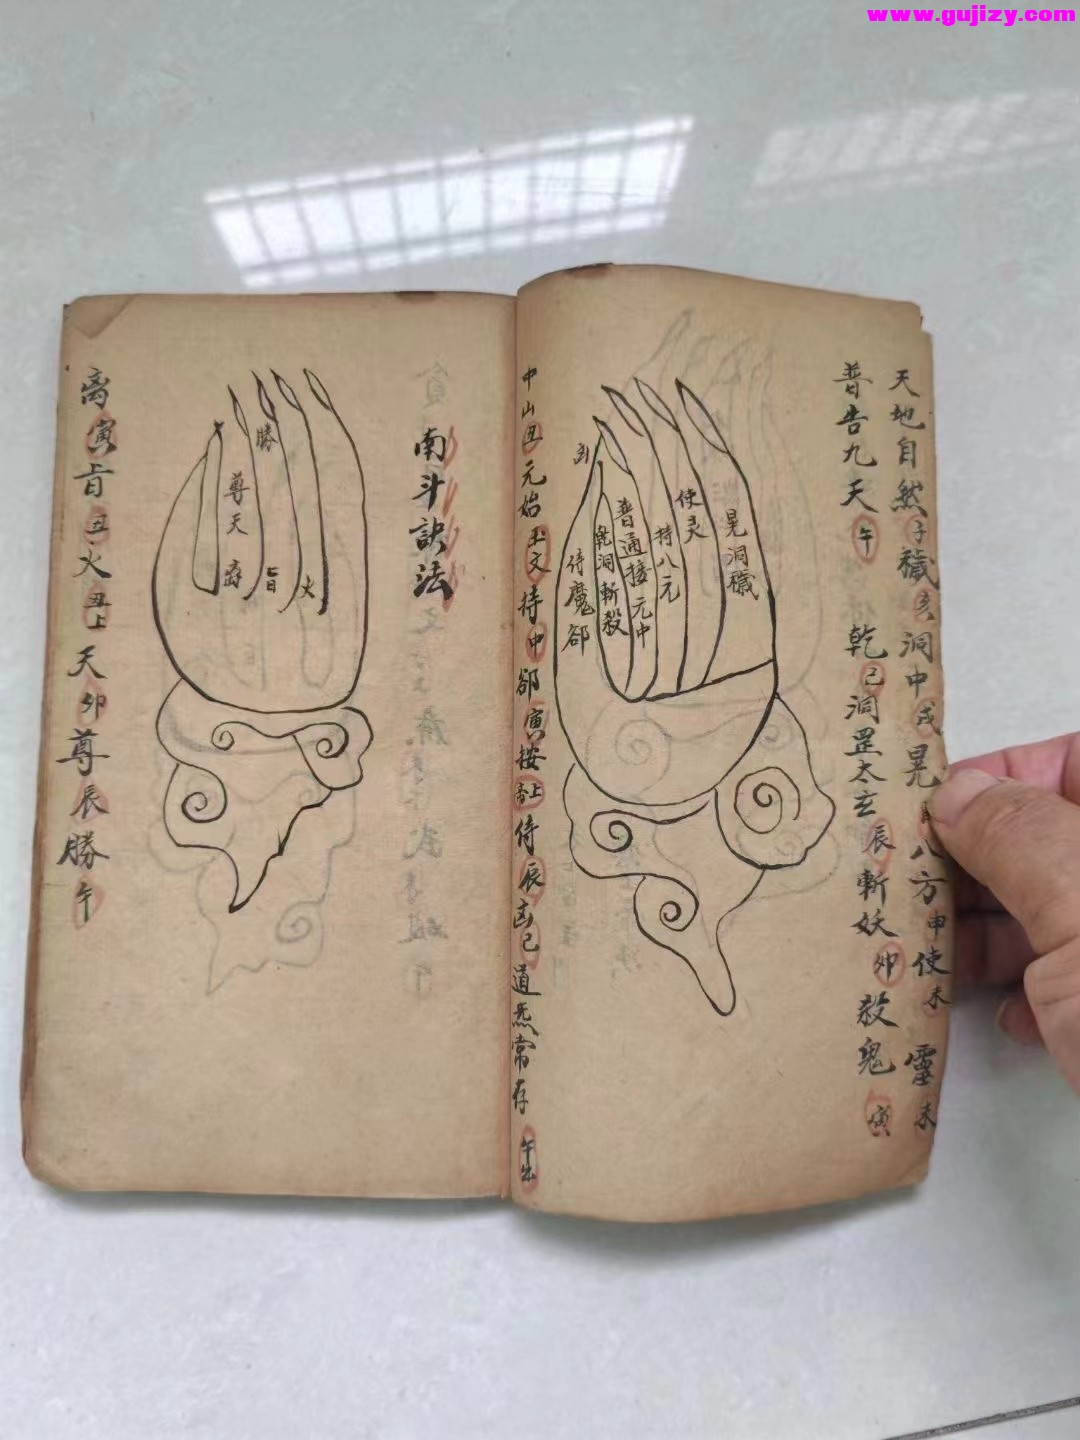 www.gujizy.com
天地自然子穢亥洞中戌晃酉八方申使未靈未
普告九天午乾巳洞罡太玄辰斬妖卯殺鬼寅
晃洞穢
使灵
持八元
普通接元中
乾洞斬殺
侍魔郤
凶
中山丑元始玉文持中郤寅按上帝侍辰凶巳道炁常存午
南斗訣法
火
旨
勝
尊天
府
离寅旨丑火丑上天卯尊辰勝午